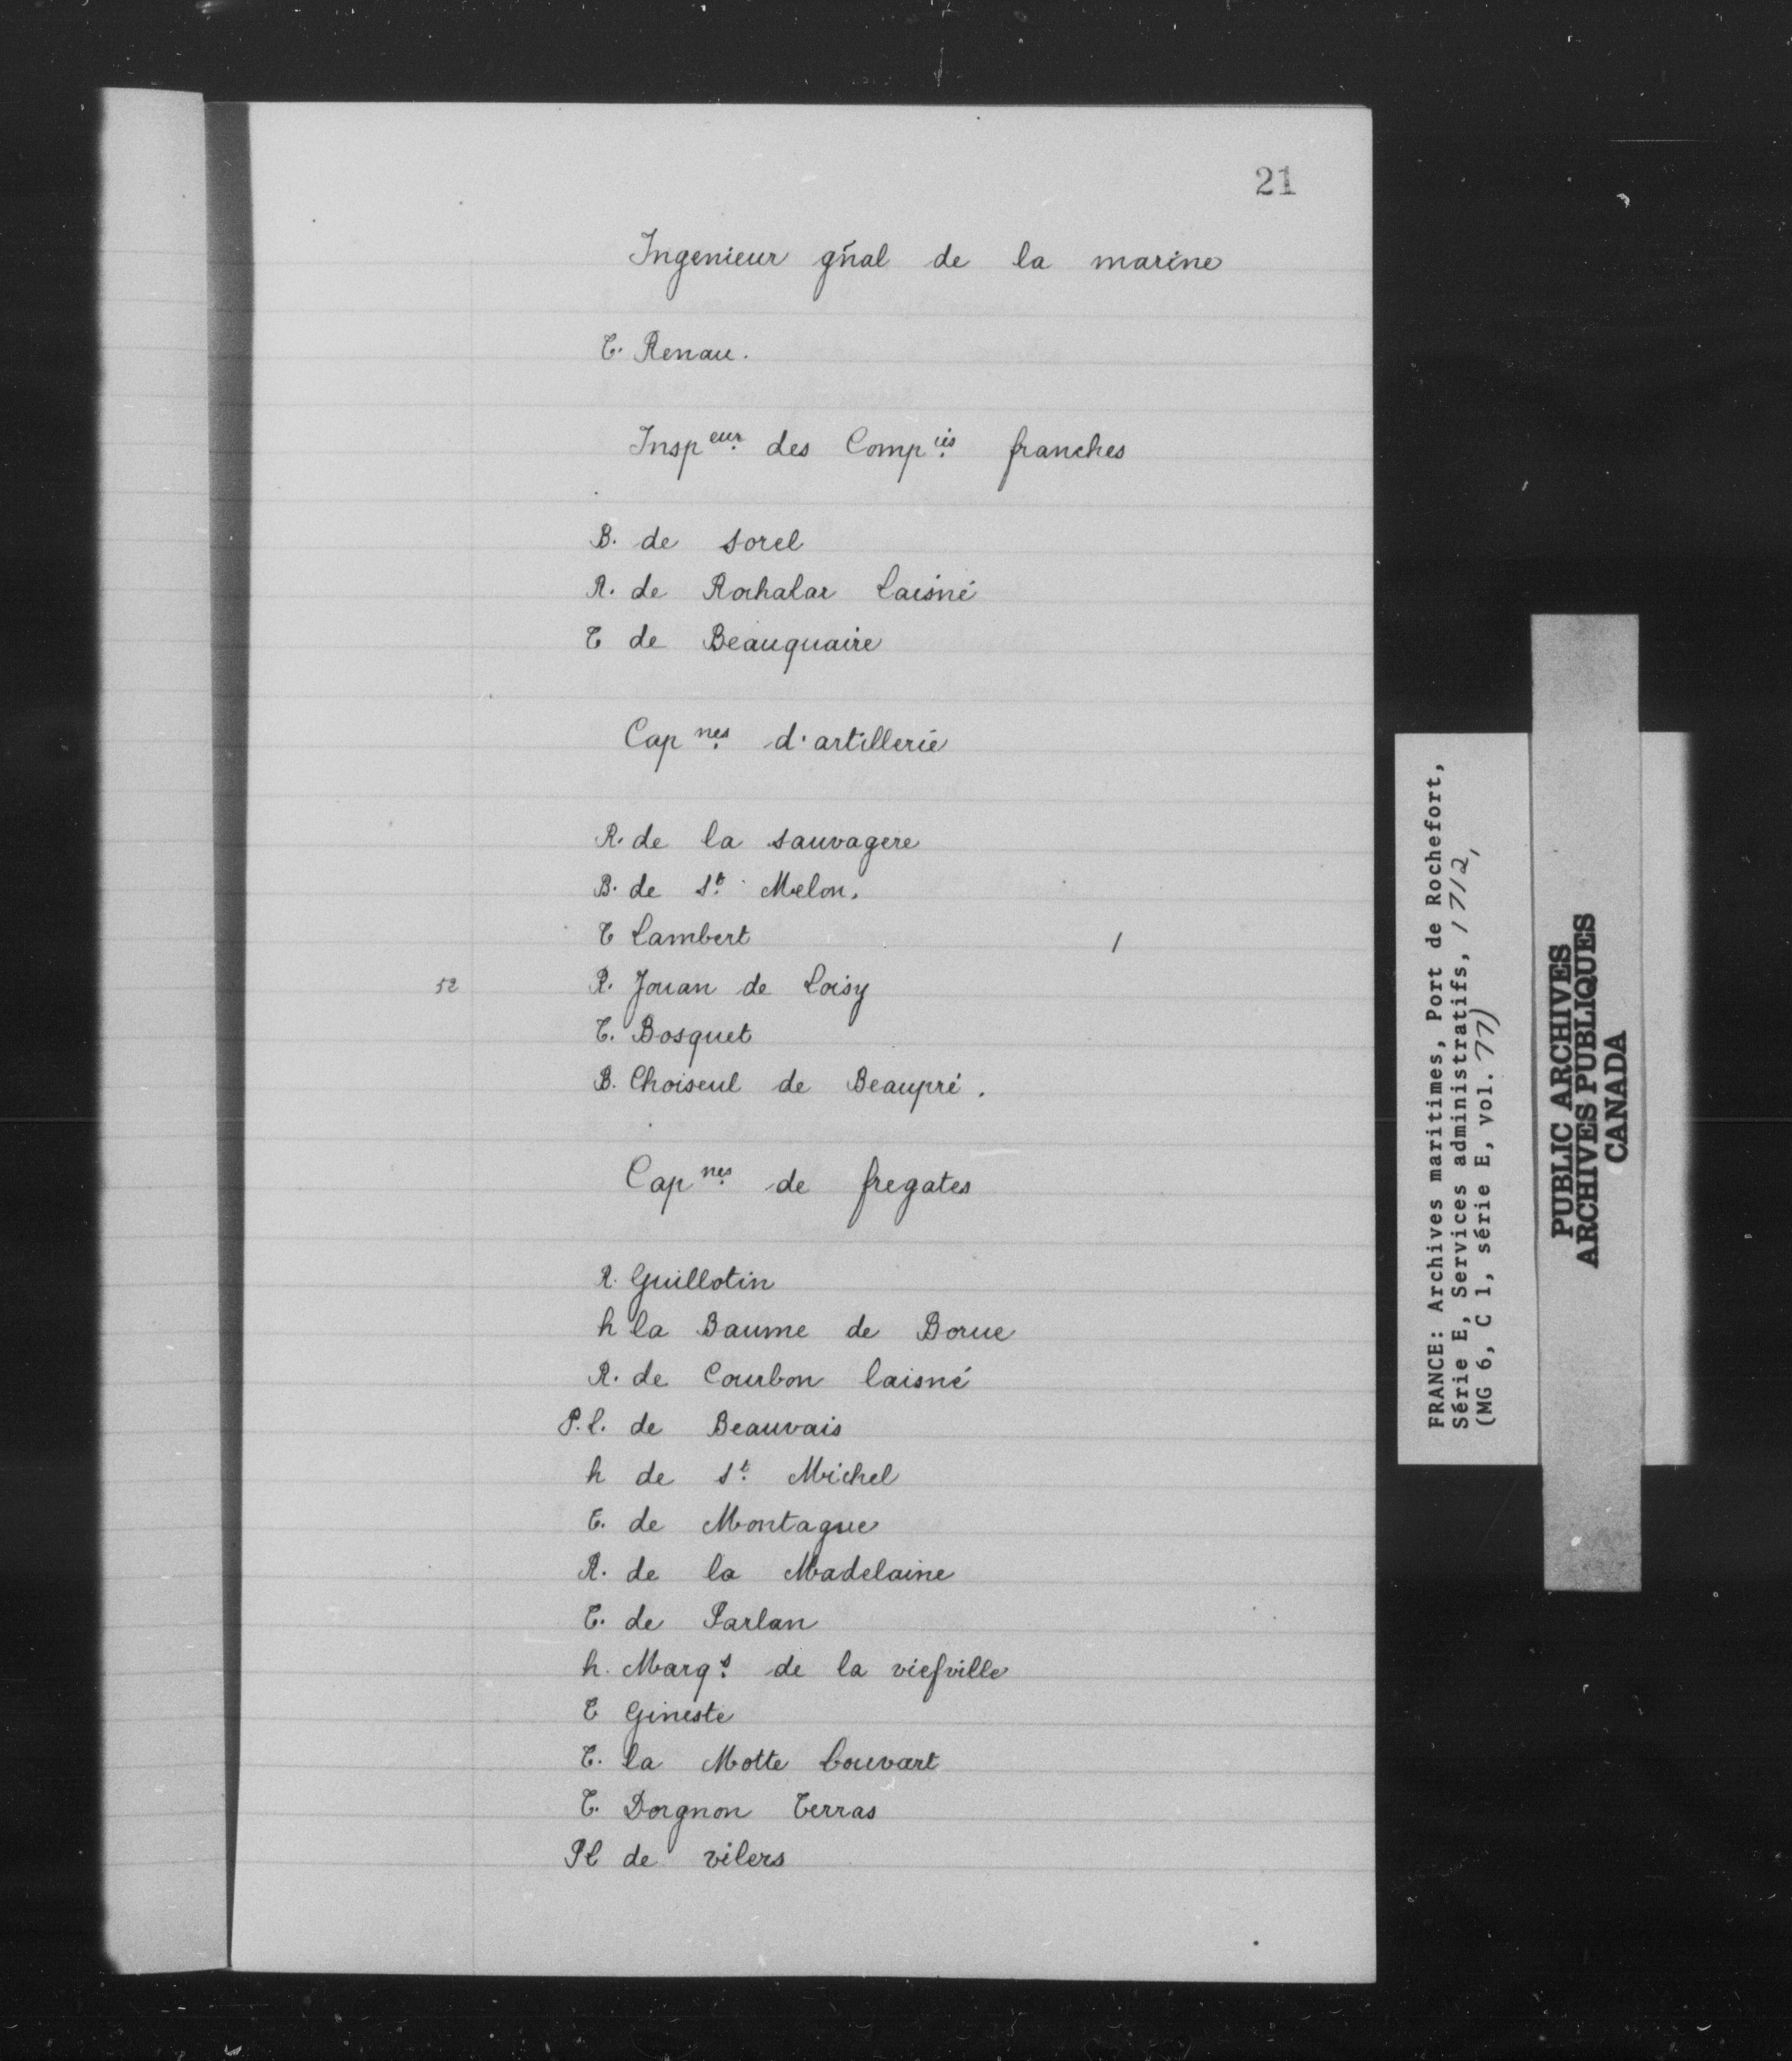 21
Ingenieur gñal de la marine
T. Renau.
Insp eur. des Comp ies. franches
B. de Sorel
R. de Rochalar Laisné
T de Beauquaire
Cap nes. d'artillerie
R. de la Sauvagere
B. de St. Melon.
T Lambert 1
52 R. Jouan de Loisy
T. Bosquet
B. Choiseul de Beaupré.
Cap nes. de fregates
R. Guillotin
h la Baume de Borue
R. de Courbon laisné
P.l. de Beauvais
h de St. Michel
T. de Montague
R. de la Madelaine
T. de Parlan
h. Marqs. de la viefville
T Gineste
T. la Motte Louvart
T. Dorgnon Terras
Pl de vilers
FRANCE: Archives maritimes, Port de Rochefort,
Série E, Services administratifs, 1712,
(MG 6, C 1, série E, vol. 77)
PUBLIC ARCHIVES
ARCHIVES PUBLIQUES
CANADA